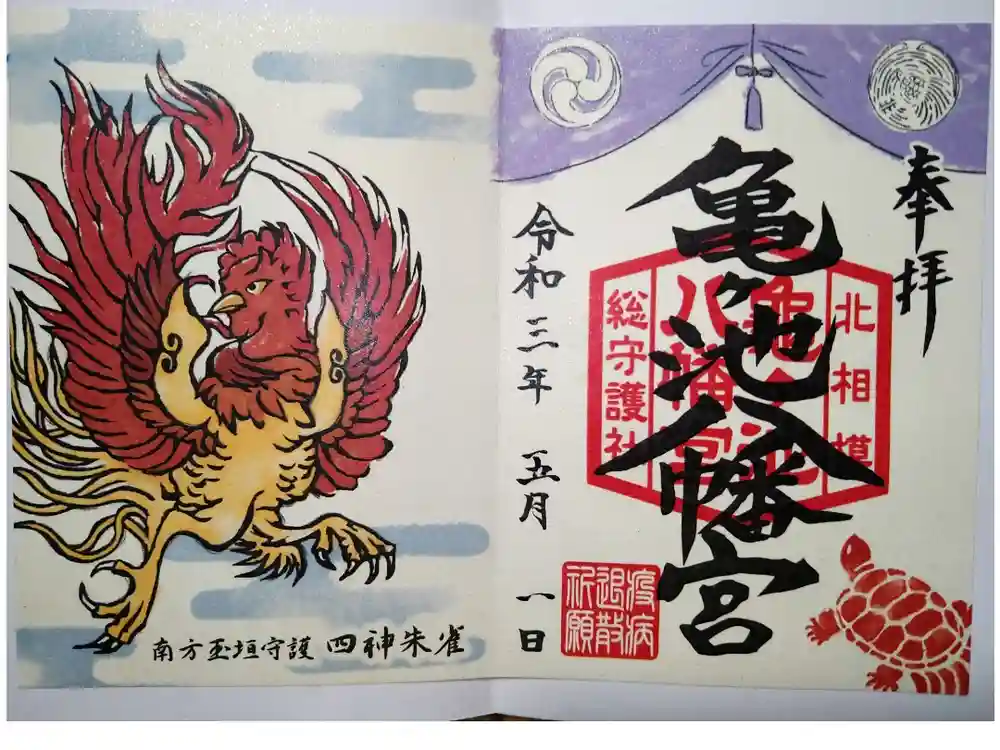 奉拝
亀ヶ池八幡宮
北相模
亀ヶ池
八幡宮
総守護社
令和三年 五月 一日
疫病
退散
祈願
南方玉垣守護 四神朱雀